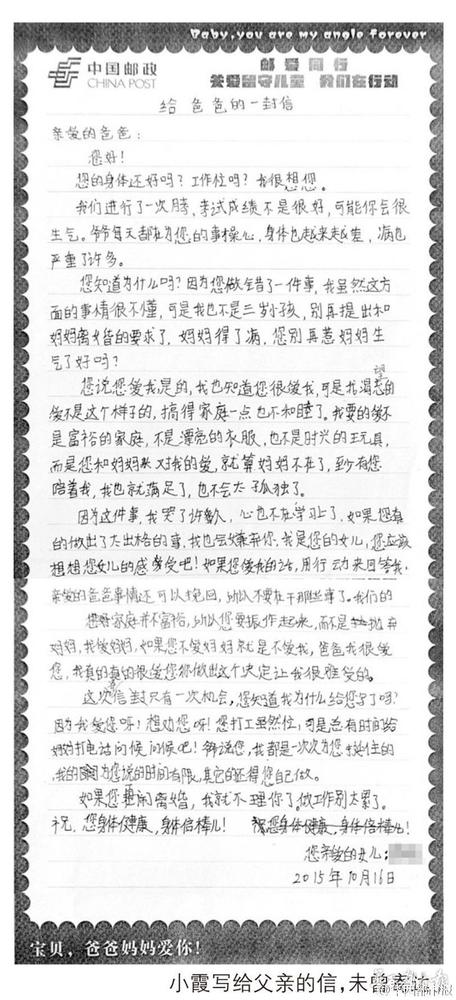 Baby,you are my angle forever
中国邮政
CHINA POST
邮爱同行
关爱留守儿童 我们在行动
给爸爸的一封信
亲爱的爸爸：
您好！
您的身体还好吗？工作忙吗？我很想您。
我们进行了一次月考，考试成绩不是很好，可能你会很
生气。爷爷每天都在为您的事操心，身体也越来越差，病也
严重了许多。
您知道为什么吗？因为您做错了一件事，我虽然这方
面的事情很不懂，可是我也不是三岁小孩，别再提出和
妈妈离婚的要求了，妈妈得了病，您别再惹妈妈生
气了好吗？
您说您爱我是的，我也知道您很爱我，可是我渴望的
爱不是这个样子的，搞得家庭一点也不和睦了。我要的爱不
是富裕的家庭，不是漂亮的衣服，也不是时兴的玩具，
而是您和妈妈对我的爱，就算妈妈不在了，至少有您
陪着我，我也就满足了，也不会太孤独了。
因为这件事，我哭了许多，心也不在学习上了，如果您真
的做出了太出格的事，我也会嫌弃你，我是您的女儿，您应该
想想您女儿的感受吧！如果您爱我的话，用行动来回答我，
亲爱的爸爸事情还可以挽回，所以不要在干那些事了。我们的
家庭并不富裕，所以您要振作起来，而不是抛弃
妈妈，我爱妈妈，如果您不爱妈妈就是不爱我，爸爸我很爱
您，我真的真的很爱您你做出这个决定让我很难受的。
这次信封只有一次机会，您知道我为什么给您写了吗？
因为我爱您呀！想劝您呀！您打工虽然忙，可是总有时间给
妈妈打电话问候问候吧！ 您，我都是一次次为您 住的
，我的 为您说的时间有限，其它的还得您自己做。
如果您要闹离婚，我就不理你了。做工作别太累了。
祝，您身体健康，身体倍棒儿！ 祝您身体健康，身体倍棒儿！
您亲爱的女儿：
2015年10月16日
宝贝，爸爸妈妈爱你！
小霞写给父亲的信，未曾寄达